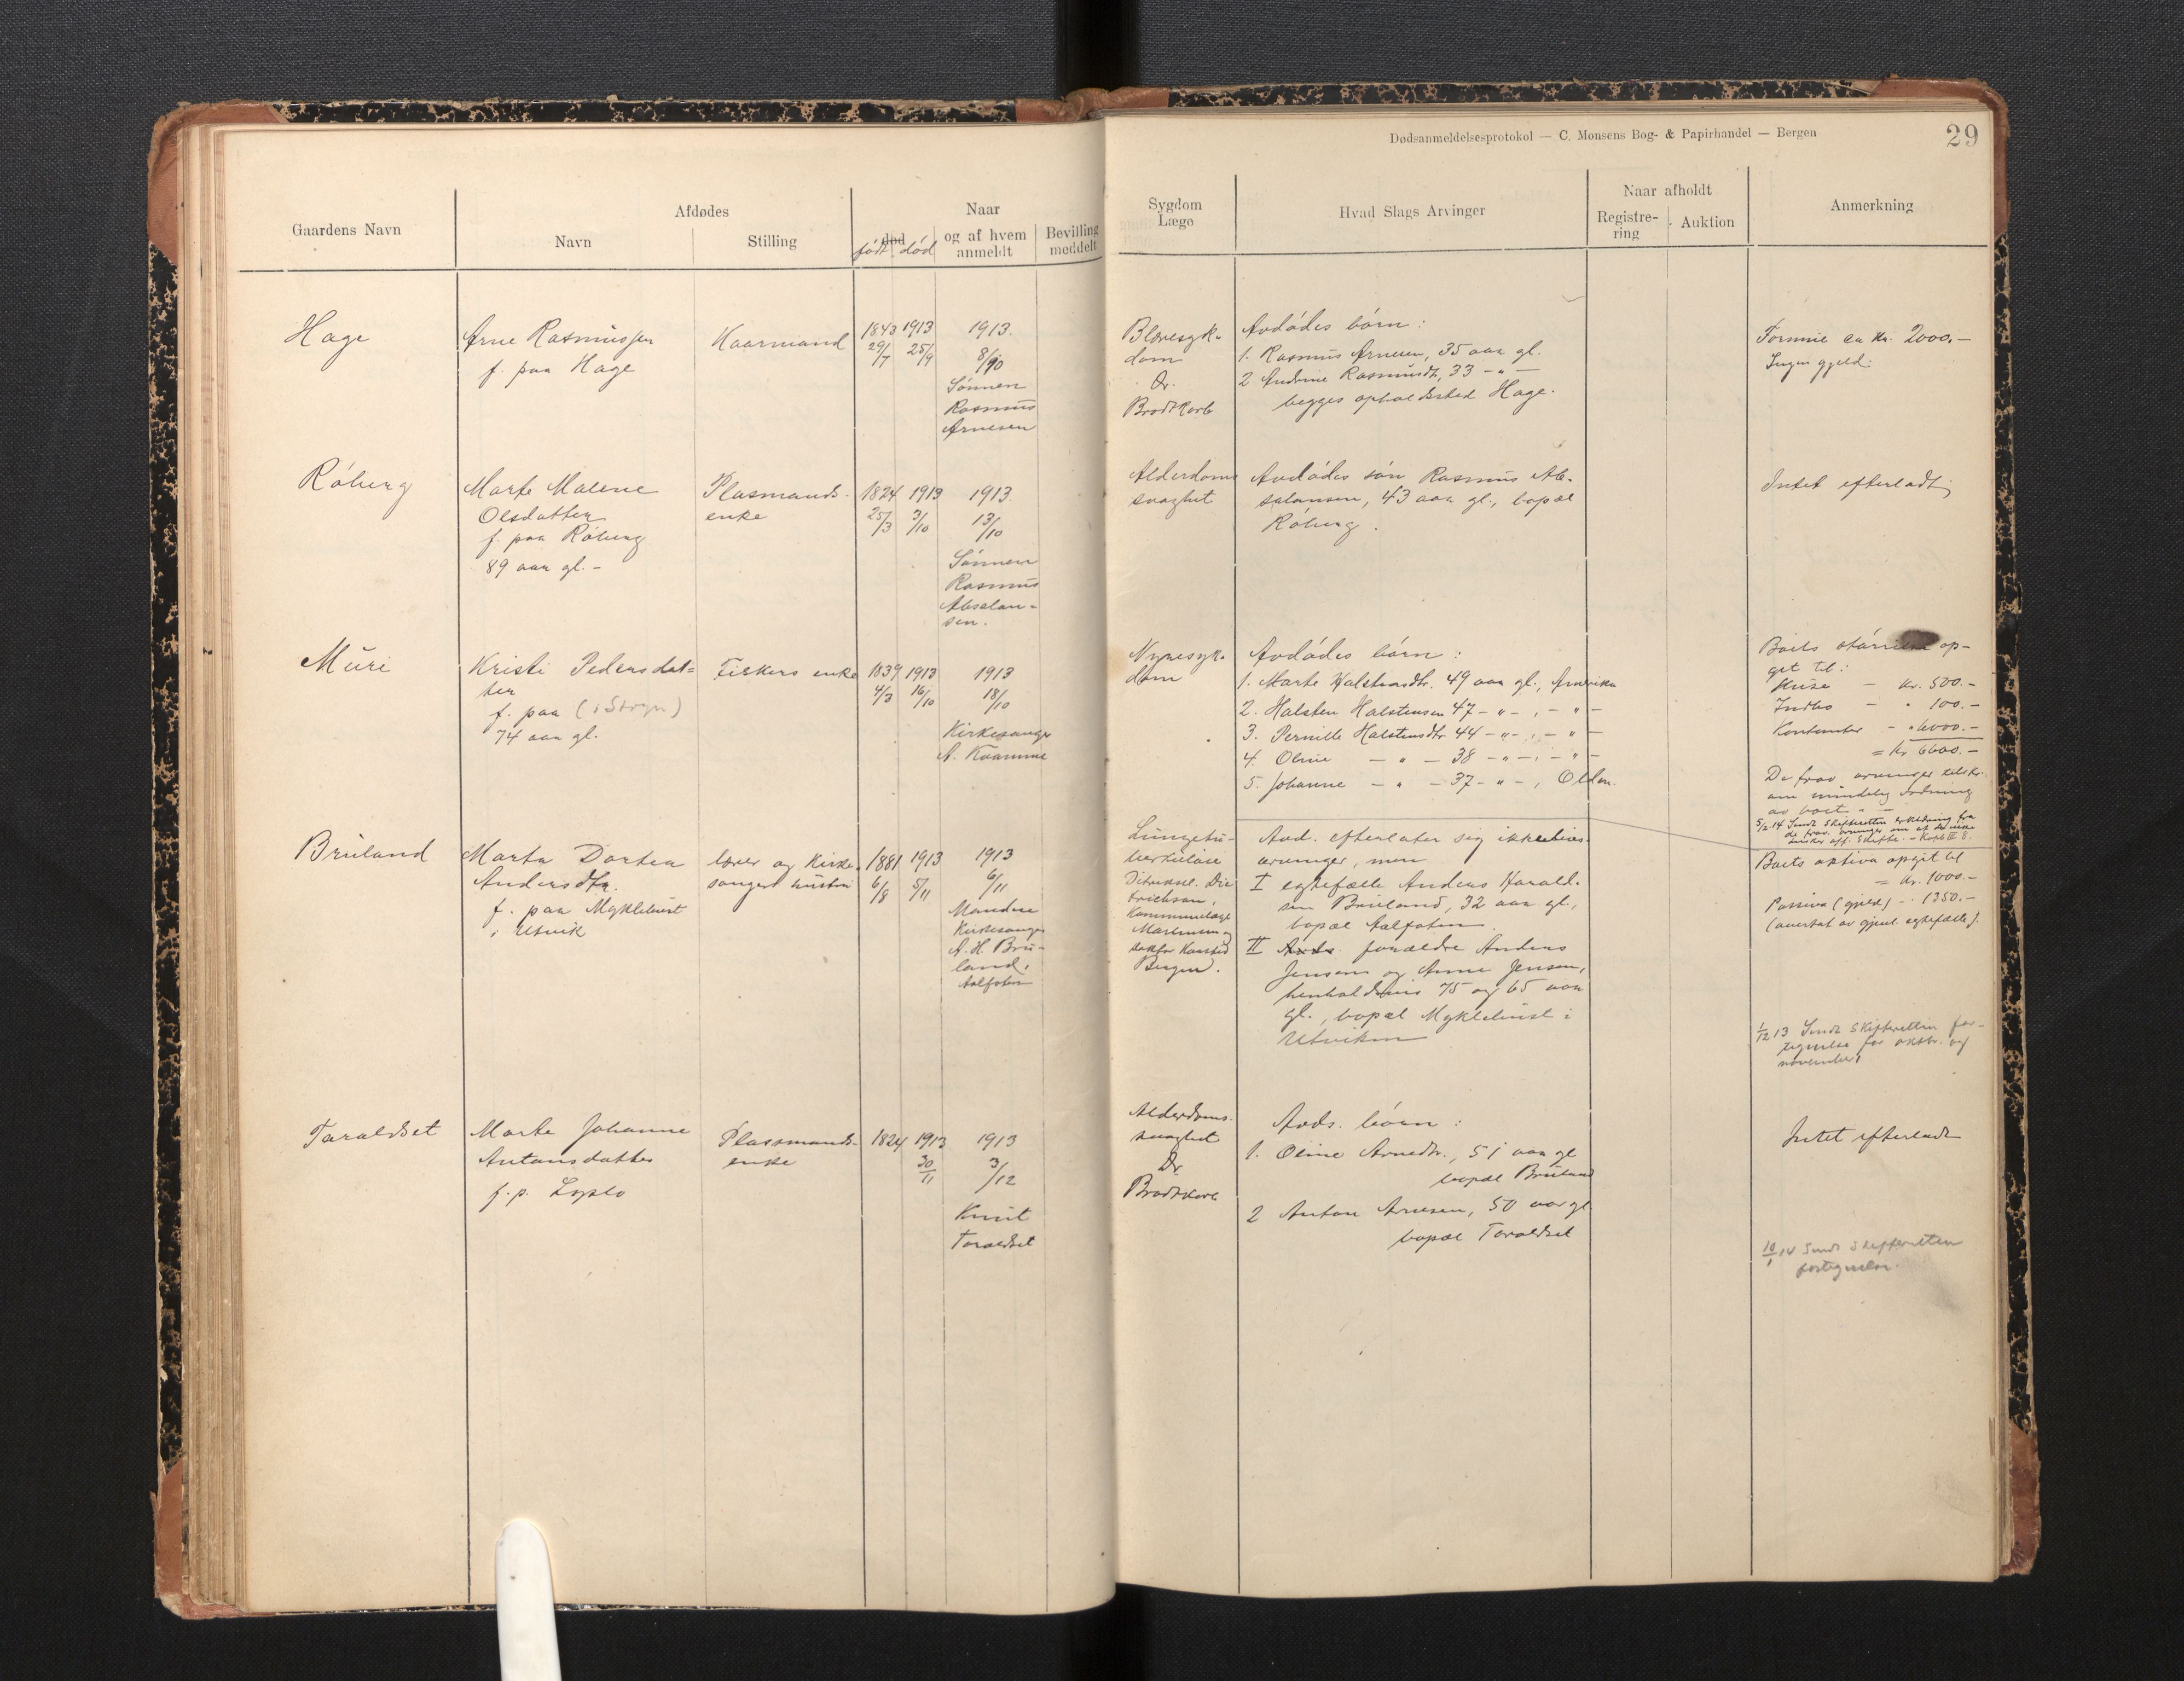 Dødsanmeldelsesprotokol — C. Monsens Bog- & Papirhandel — Bergen
29
Gaardens Navn
Afdødes
Navn
Stilling
Naar
død
født død
og af hvem
anmeldt
Bevilling
meddelt
Sygdom
Læge
Hvad Slags Arvinger
Naar afholdt
Registre-
ring
Auktion
Anmerkning
Hage
Arne Rasmussen
f. paa Hage
Kaarmand
1843 1913
29/7 25/9
1913.
8/10
Sønnen
Rasmus
Arnesen
Blæresyk-
dom
Dr.
Brodtkorb
Avdødes børn:
1. Rasmus Arnesen, 35 aar gl.
2 Andrine Rasmusdtr, 33 - " -
begges opholdssted Hage.
Formue ca kr. 2000.-
Ingen gjeld.
Röberg
Marte Malene
Olsdatter
f. paa Röberg
89 aar gl. -
Plasmands-
enke
1824 1913
25/3 3/10
1913.
13/10
Sønnen
Rasmus
Absalon-
sen.
Alderdoms
svaghet
Avdødes søn Rasmus Ab-
salonsen, 43 aar gl., bopæl
Röberg.
Intet efterladt
Muri
Kristi Pedersdat-
ter
f. paa (i Stryn)
74 aar gl.
Fiskers enke
1839 1913
4/3 16/10
1913
18/10
Kirkesanger
A. Kvamme
Nyresyk-
dom
Avdødes børn:
1. Marte Halstensdtr. 49 aar gl., Amerika
2. Halsten Halstensen 47 - " - , - " -
3. Pernille Halstensdtr 44 - " - , - " -
4. Oline - " - 38 - " - , - " -
5. Johanne - " - 37 - " - , Olden.
Boets størrelse op-
git til:
Huse - kr. 500.-
Indbo - " 100.-
Kontanter - " 6000.-
= kr 6600.-
De frav. arvinger tilskr.
om mindelig ordning
av boet. " -
5/2 14 Sendt Skifteretten erklæring fra
de frav. arvinger om at de ikke
ønsker off. Skifte. -
Bruland
Marta Dortea
Andersdtr.
f. paa Myklebust
i Utvik
lærer og Kirke-
sangers hustru
1881 1913
6/8 5/11
1913
6/11
Manden
Kirkesanger
A. H. Bru-
land,
Aalfoten
Lungetu-
berkulose
Distriktsl. Die
trichson,
Kommunelæge
Martmann og
doktor
Bergen.
Avd. efterlater sig ikke livs-
arvinger, men
I egtefælle Andreas Harald-
sen Bruland, 32 aar gl.,
bopæl Aalfoten.
II Avds. forældre Anders
Jensen og Anne Jensen,
henholdsvis 75 og 65 aar
gl., bopæl Myklebust i
Utviken
Boets aktiva opgit til
= kr. 1000.-
Passiva (gjeld) - " 1350.-
(overtat av gjenl. egtefælle).
1/12 13 Sendt Skifteretten for-
tegnelse for oktbr. og
november
Taraldset
Marte Johanne
Antonsdatter
f. p. Lyslo
Plassmands-
enke
1824 1913
30/11
1913
3/12
Knut
Taraldset
Alderdoms-
svaghet
Dr.
Brodtkorb
Avds. børn:
1. Oline Arnedtr., 51 aar gl
bopæl Bruland
2 Anton Arnesen, 50 aar gl
bopæl Taraldset
Intet efterladt
10/1 14 Sendt Skifteretten
fortegnelse.